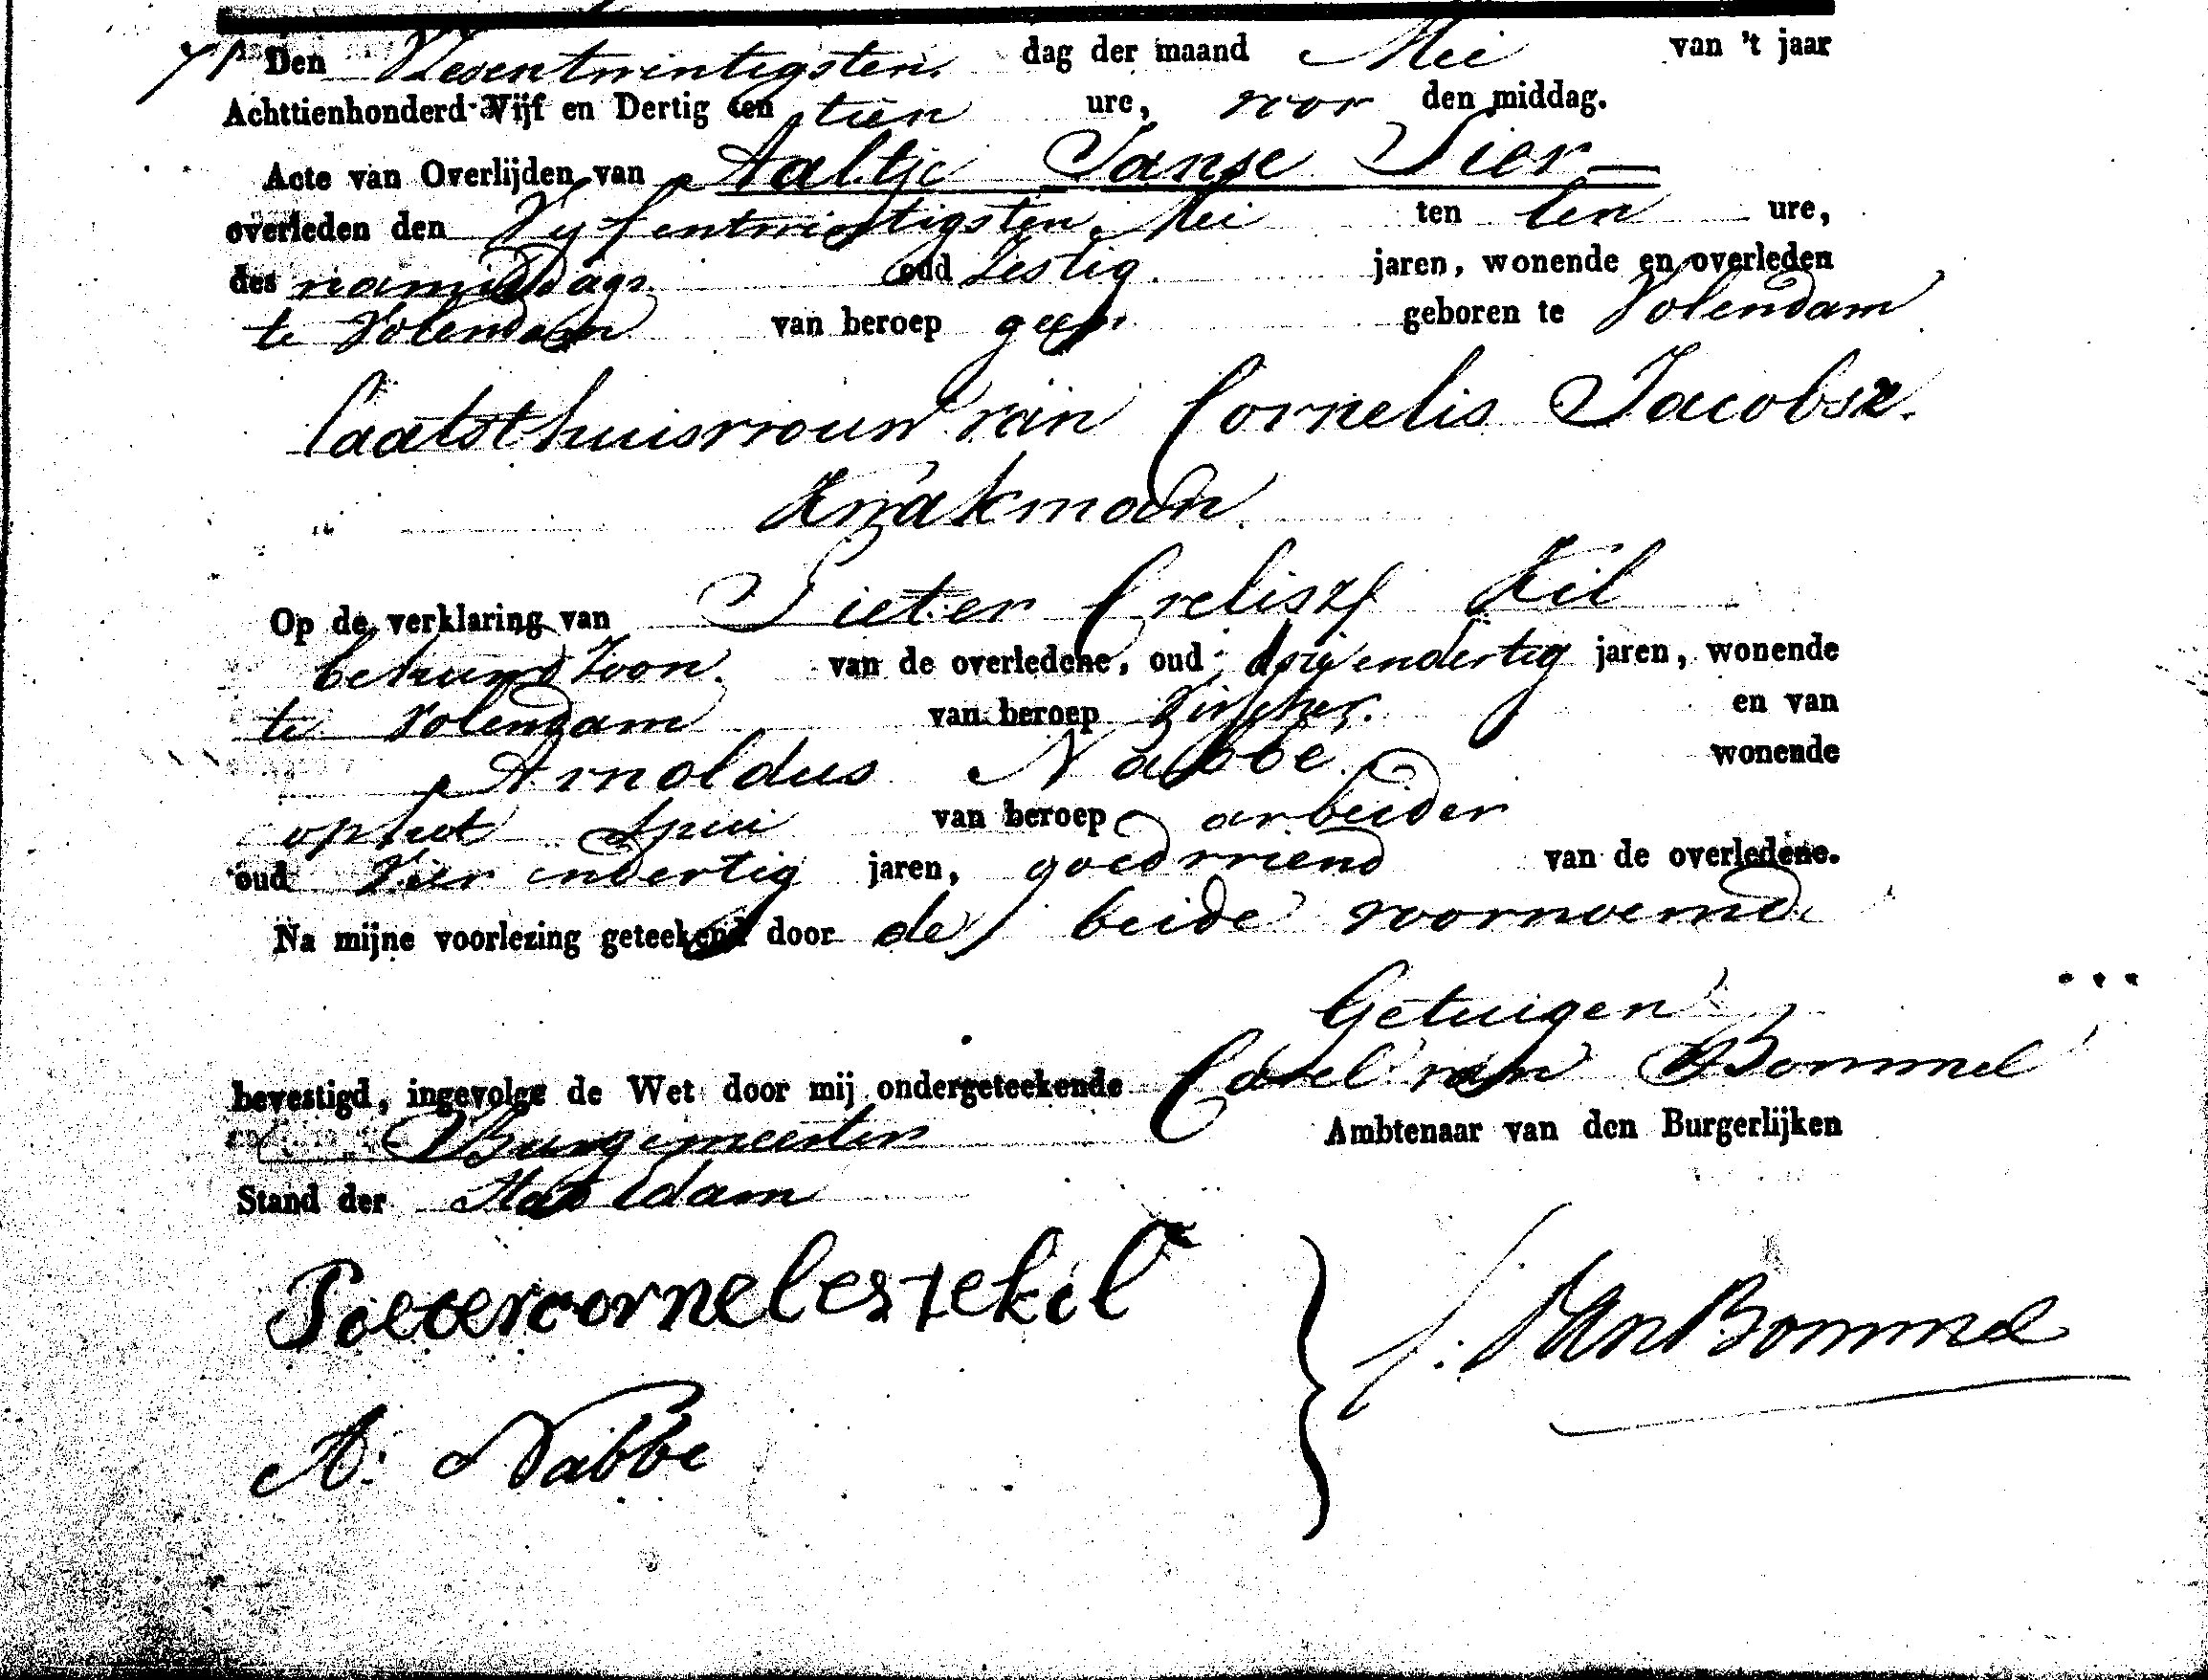 71 Den Zevenentwintigsten dag der maand Mei van 't jaar
Achttienhonderd Vijf en Dertig ten tien ure, voor den middag.
Acte van Overlijden van Aaltje Janse Sier
overleden den Vyfentwintigsten Mei ten een ure,
des namiddags oud Zestig jaren, wonende en overleden
te Volendam van beroep geen geboren te Volendam
laatst huisvrouw van Cornelis Jacobsz.
Kwakmoon
Op de verklaring van Pieter Crelisz Kil
behuwd Zoon van de overledene, oud drie endertig jaren, wonende
te Volendam van beroep Visscher. en van
Arnoldus Nabbe wonende
op het Spui van beroep arbeider
oud Vier endertig jaren, goed vriend van de overledene.
Na mijne voorlezing geteekend door de beide voornoemde
Getuigen
bevestigd, ingevolge de Wet door mij ondergeteekende Carel van Bommel
Burgemeester Ambtenaar van den Burgerlijken
Stand der Stad Edam
Pieter cornelesze kil
A: Nabbe
C. Van Bommel